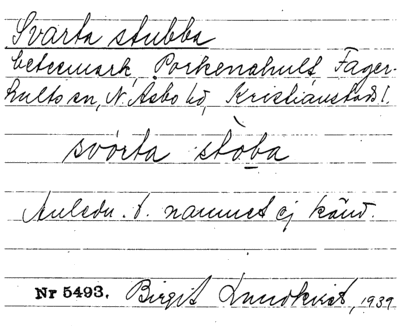 Svarta stubba
betesmark, Porkenahult, Fager-
hults sn, N. Åsbo hd, Kristianstads l.
svórta stòba
Anledn. t. namnet ej känd.
Nr 5493. Birgit Lundkvist, 1939